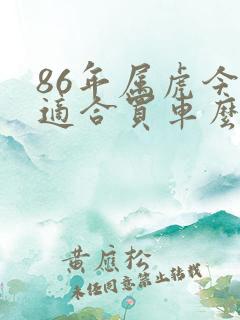 86年属虎今
適合買車麼
黄應松
未经同意禁止转载